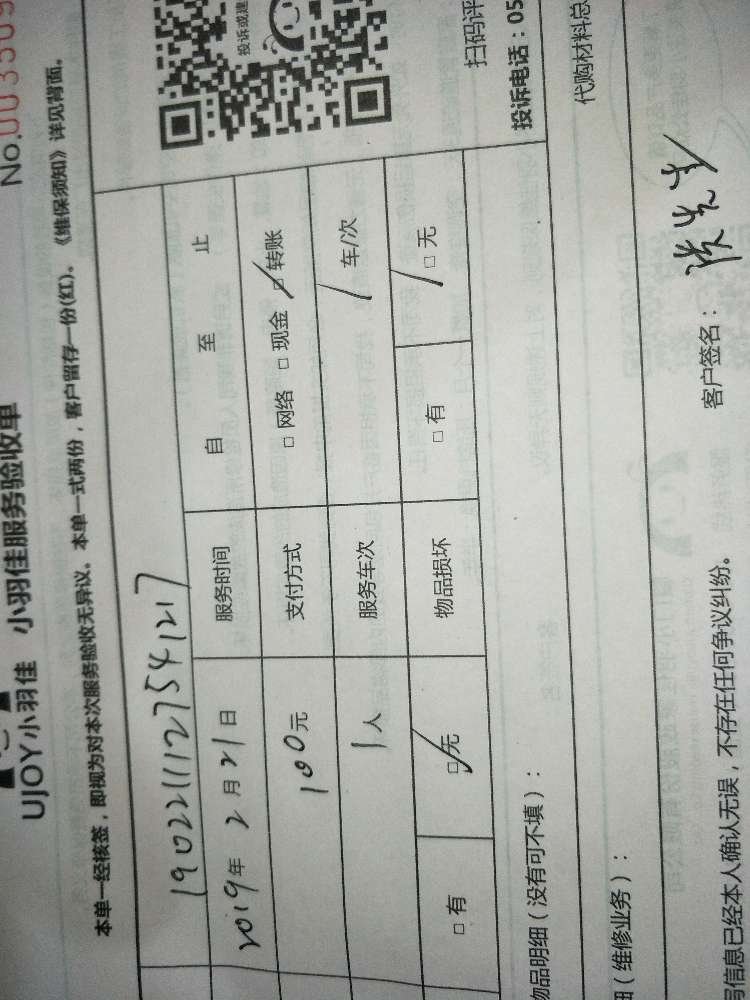 No.003509
UJOY小羽佳 小羽佳服务验收单
本单一经核签，即视为对本次服务验收无异议。本单一式两份，客户留存一份(红)。《维保须知》详见背面。
投诉或建
扫码评
投诉电话：05
1902211127541217
2019年2月21日 服务时间 自 至 止
100元 支付方式 □网络 □现金 □转账
1人 服务车次 1车/次
□有 □无 物品损坏 □有 □无
物品明细（没有可不填）：
代购材料总
（维修业务）：
客户签名：
信息已经本人确认无误，不存在任何争议纠纷。